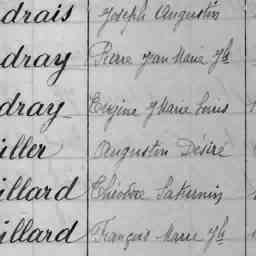 drais Joseph Augustin
dray Pierre Jean Marie Jh
dray Eugène Marie Louis
iller Augustin Désiré
illard Théodore Saturnin
illard François Marie Jh